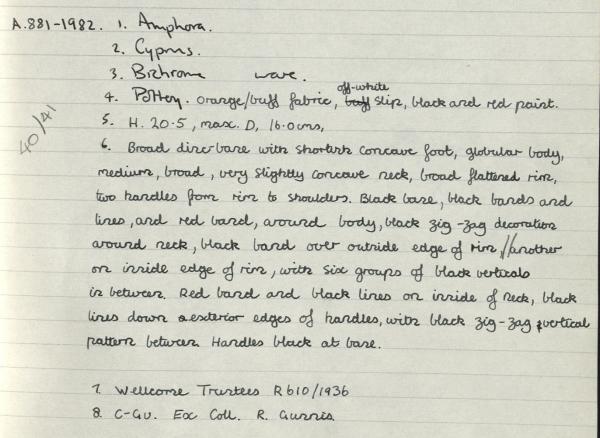 A.881-1982. 1. Amphora.
2. Cyprus.
3. Bichrome ware.
4. Pottery. orange/buff fabric, buff off-white slip, black and red paint.
5. H. 20.5, max. D, 16.0cms,
40/41
6. Broad disc-base with shortish concave foot, globular body,
medium, broad, very slightly concave neck, broad flattened rim,
two handles from rim to shoulders. Black base, black bands and
lines, and red band, around body, black zig-zag decoration
around neck, black band over outside edge of rim, // another
on inside edge of rim, with six groups of black verticals
in between. Red band and black lines on inside of neck, black
lines down exterior edges of handles, with black zig-zag & vertical
pattern between. Handles black at base.
7. Wellcome Trustees R610/1936
8. C-Gu. Ex Coll. R. Gunnis.